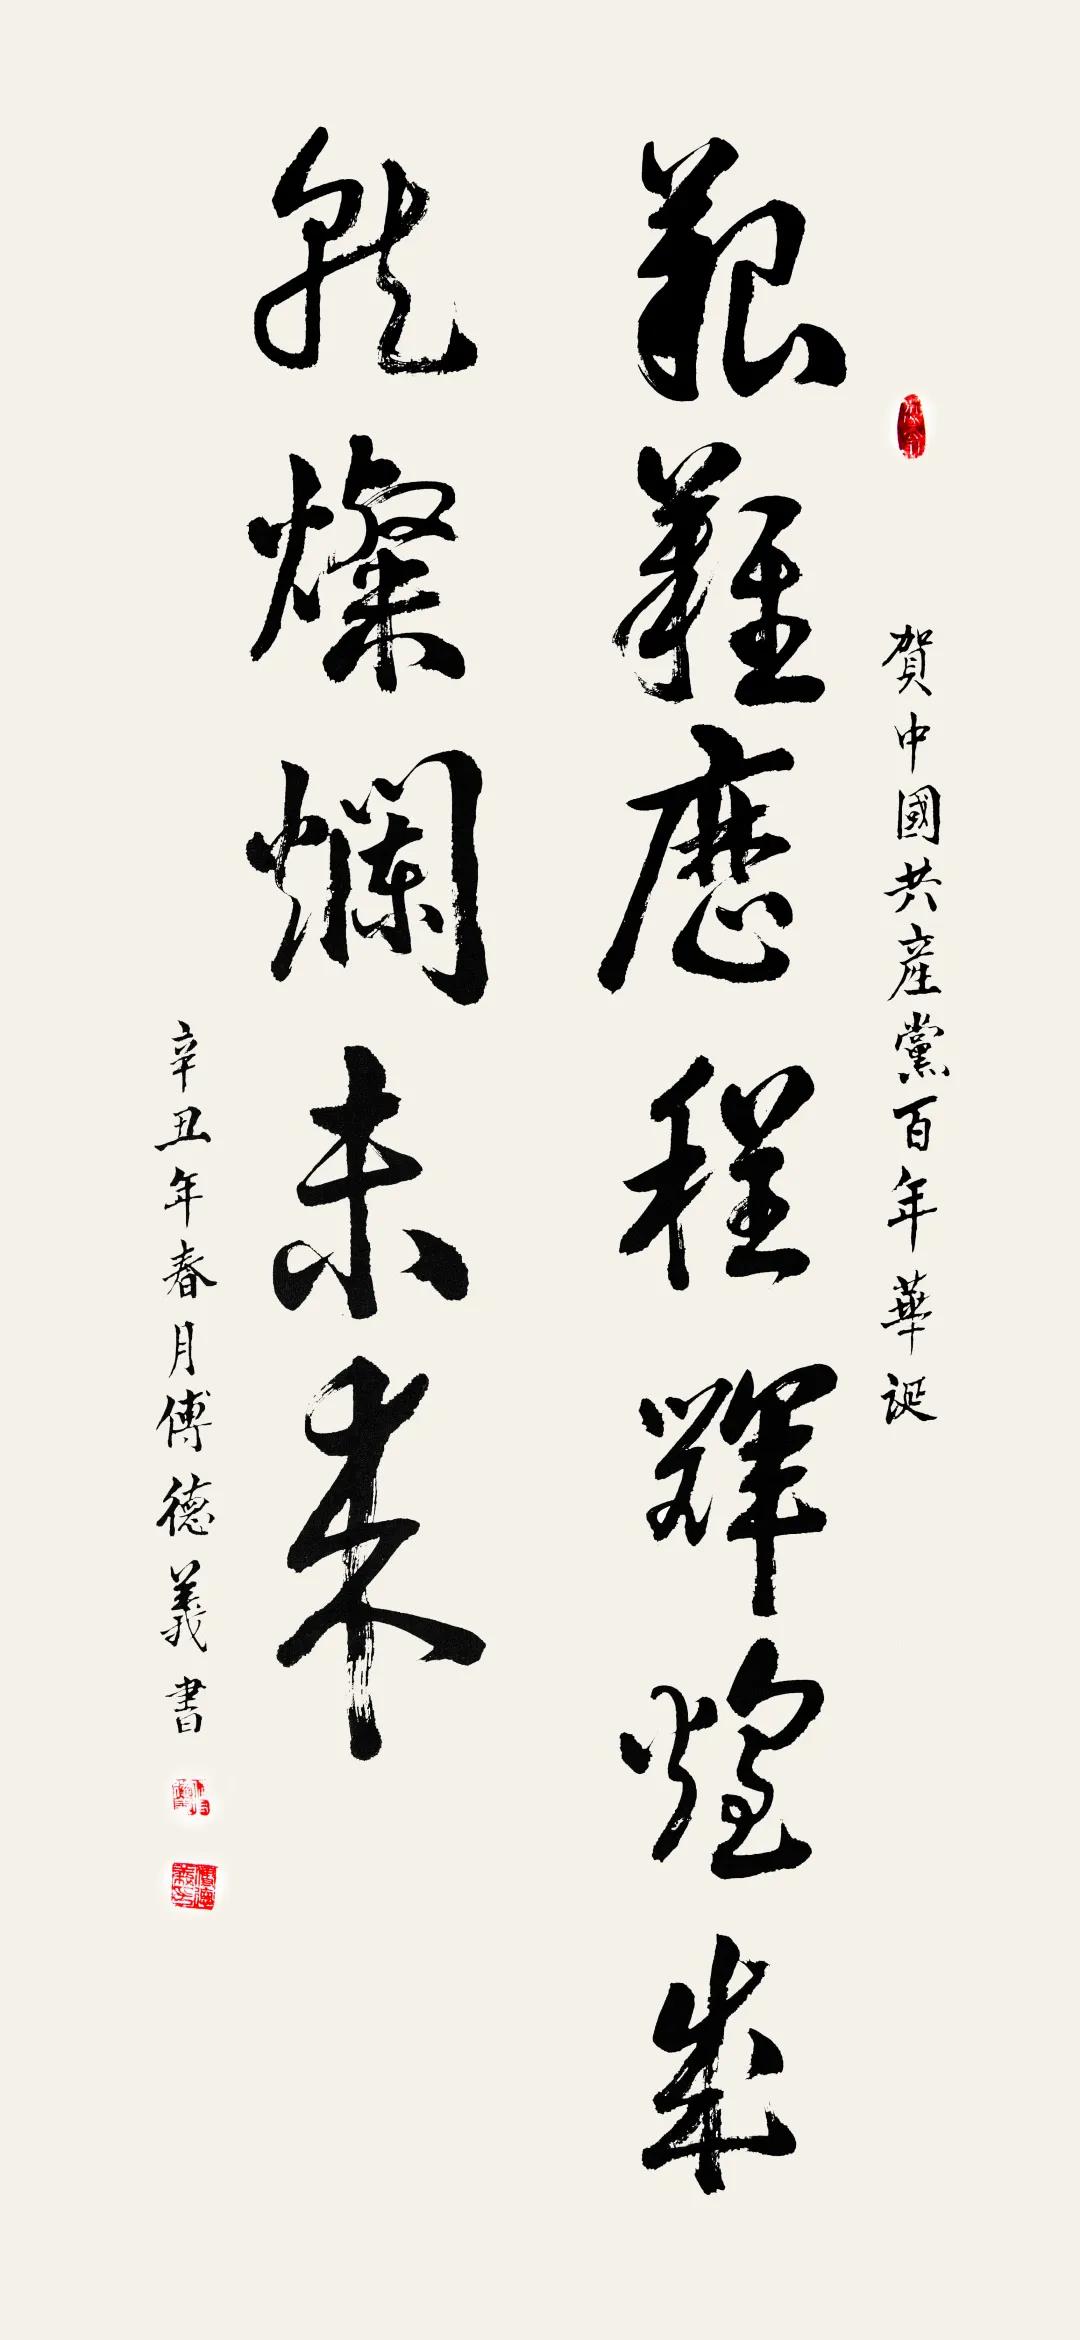 賀中國共產黨百年華誕
艱難歷程輝煌成
就燦爛未來
辛丑年春月傅德義書